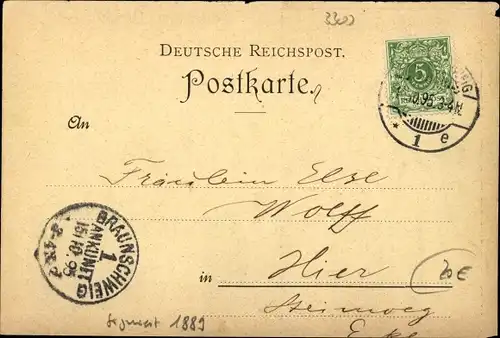 3300
DEUTSCHE REICHSPOST.
Postkarte.
5
10.95. 3-4N.
* 1 e
An
Fräulein Else
Wolff
in Hier
20€
Steinweg
BRAUNSCHWEIG
1
ANKUNFT
15/10.95
1889